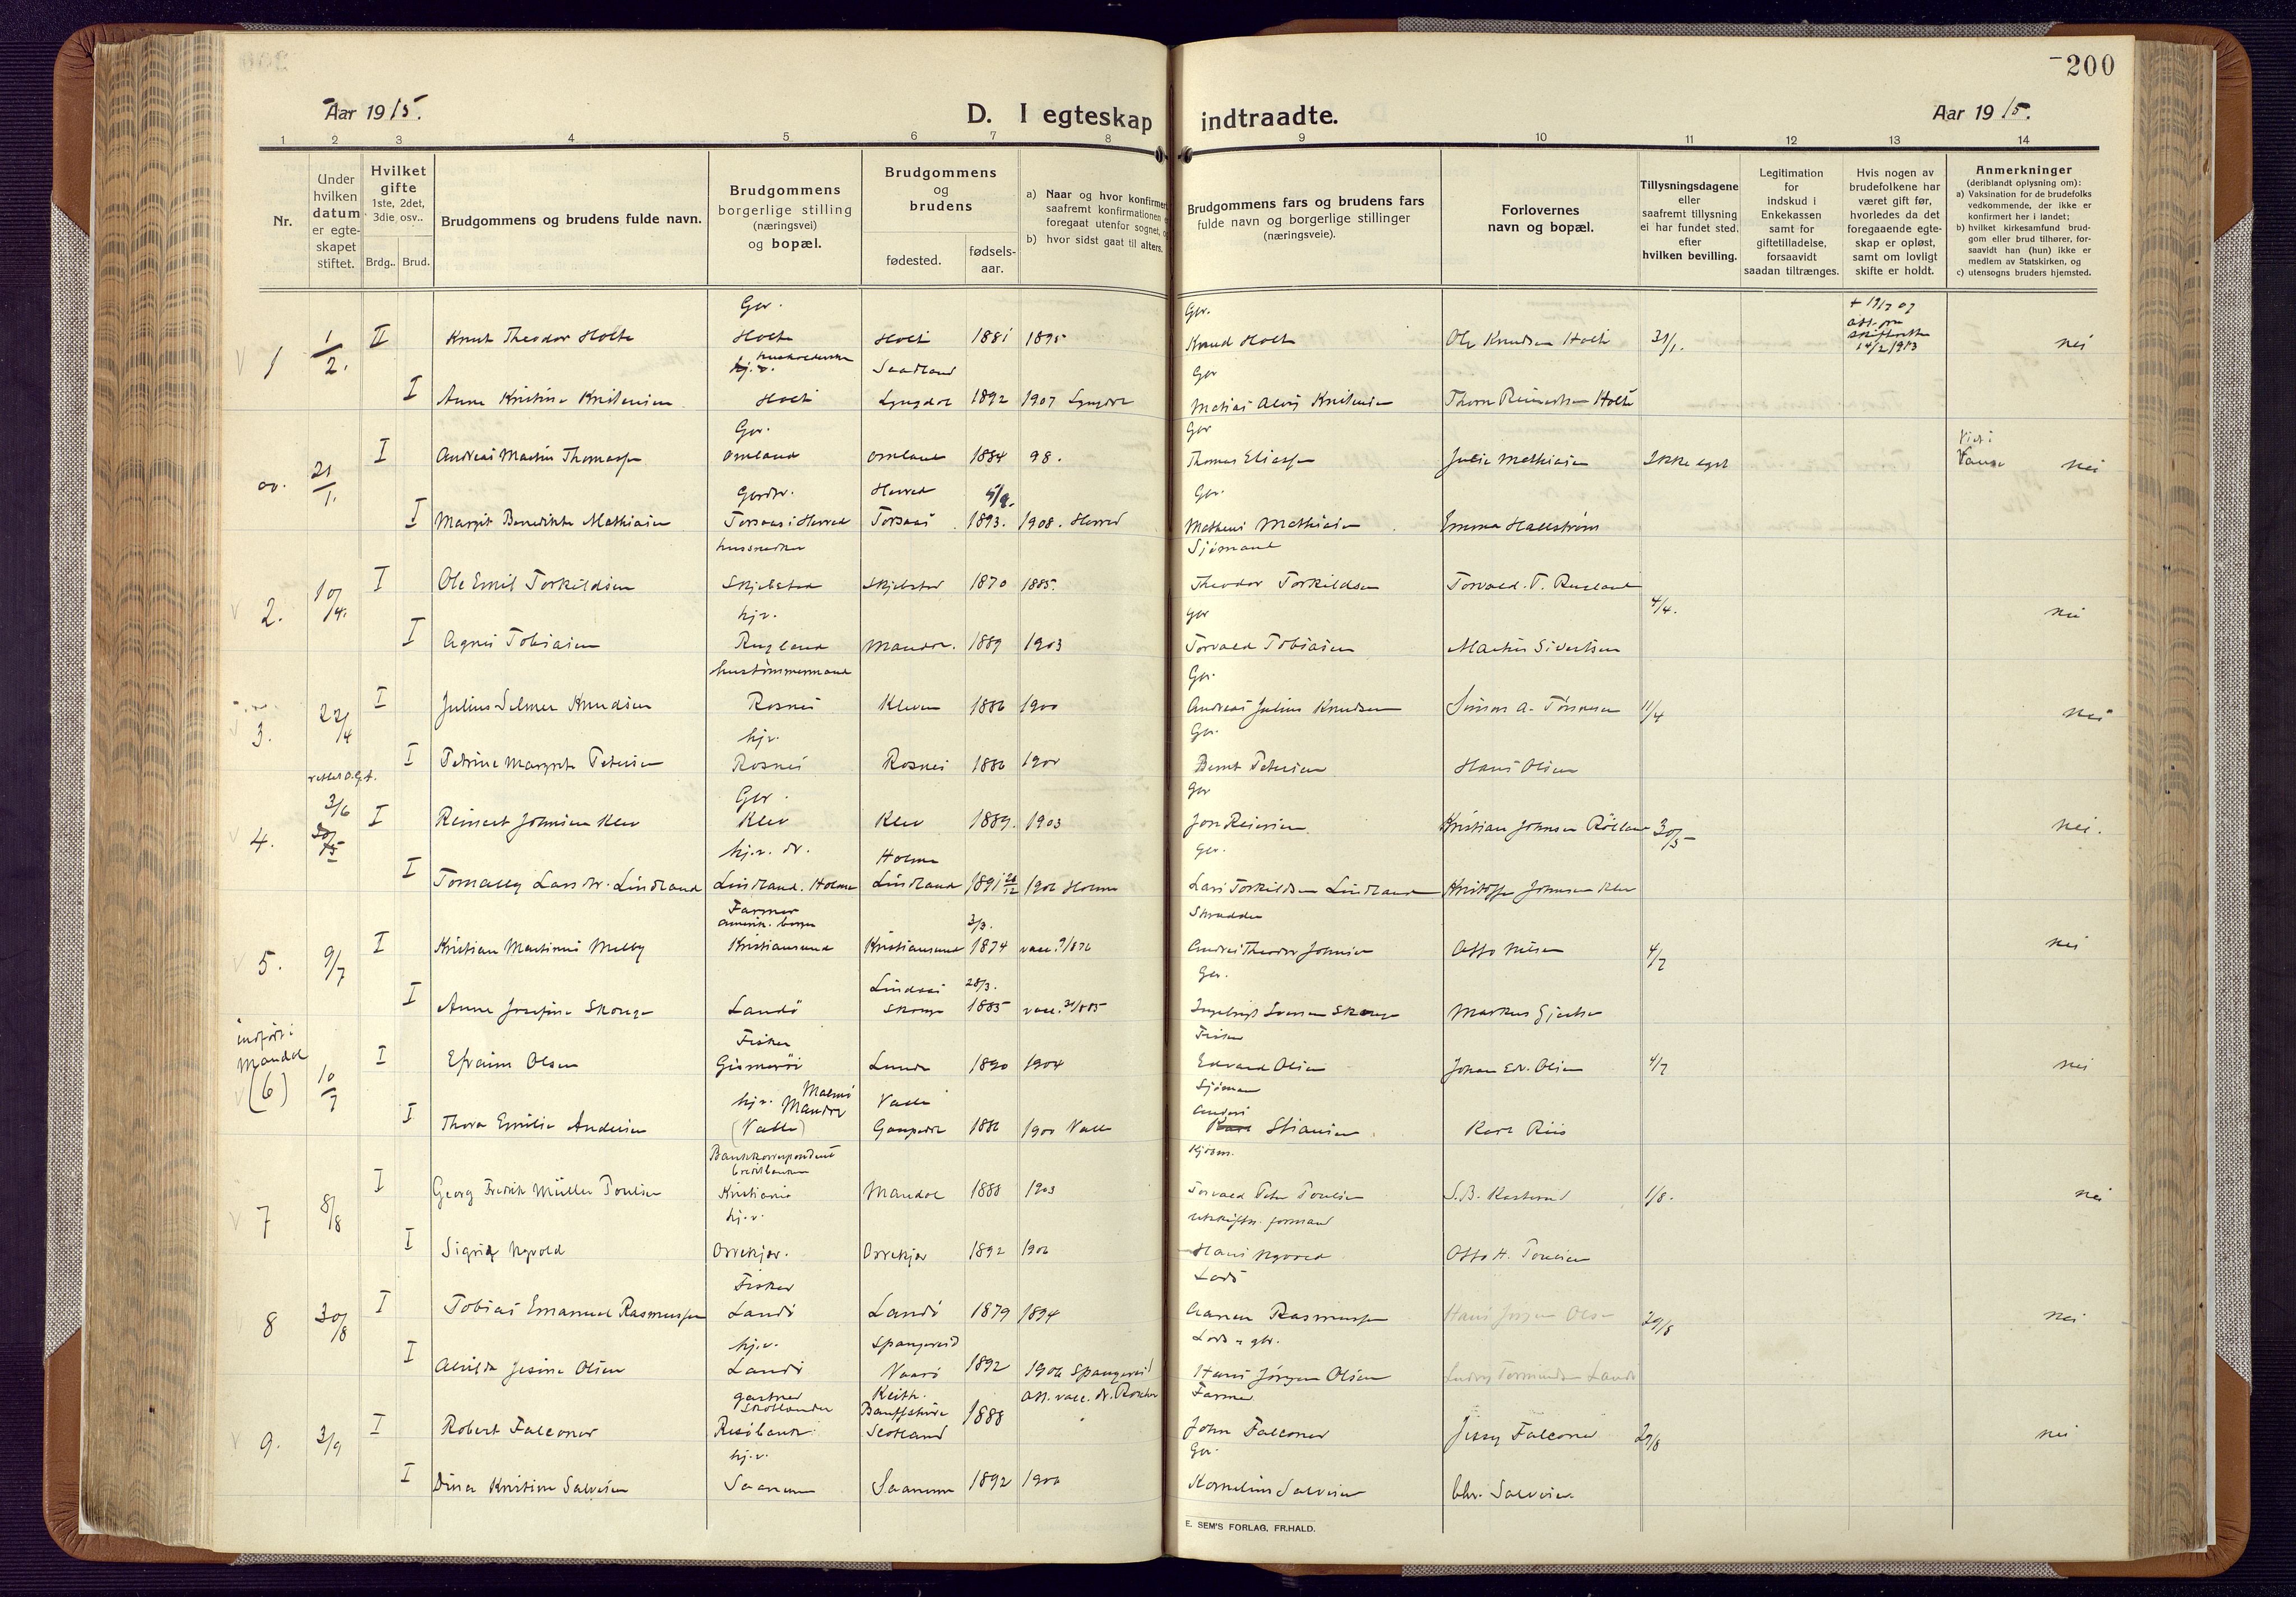 200
Aar 1915.
D. I egteskap indtraadte.
Aar 1915.
1 2 3 4 5 6 7 8 9 10 11 12 13 14
Nr.
Under hvilken datum er egte-skapet stiftet.
Hvilket gifte 1ste, 2det, 3die, osv..
Brdg.. Brud.
Brudgommens og brudens fulde navn.
Brudgommens borgerlige stilling (næringsvei) og bopæl.
Brudgommens og brudens
fødested.
fødsels-aar.
a) Naar og hvor konfirmer
saafremt konfirmationen
foregaat utenfor sognet,
b) hvor sidst gaat til alters.
Brudgommens fars og brudens fars
fulde navn og borgerlige stillinger
(næringsveie).
Forlovernes
navn og bopæl.
Tillysningsdagene
eller
saafremt tillysning
ei har fundet sted.
efter
hvilken bevilling.
Legitimation
for
indskud i
Enkekassen
samt for
giftetilladelse,
forsaavidt
saadan tiltrænges.
Hvis nogen av
brudefolkene har
været gift før,
hvorledes da det
foregaaende egte-
skap er opløst,
samt om lovligt
skifte er holdt.
Anmerkninger
(deriblandt oplysning om):
a) Vaksination for de brudefolks
vedkommende, der ikke er
konfirmert her i landet;
b) hvilket kirkesamfund brud-
gom eller brud tilhører, for-
saavidt han (hun) ikke er
medlem av Statskirken, og
c) utensogns bruders hjemsted.
Gbr. Gbr. + 19/7 07
1 1/2. II Knut Theodor Holte Holte Holt 1881 1895 Knud Holt Ole Knudsen Holte 31/1. 14/2 1913 nei
Saadland Gbr
I Anne Kristine Kristensen Holt Lyngdal 1892 1907 Lyngdal Matias Alvij Kristensen Thom Reinertsen Holte
Gbr. Gbr
21/1. I Andreas Martin Thomassen Omland Omland 1884 98. Thomas Eliassen Julie Mathiasen Ikke lyst nei
Gbrdtr. Herred 5/9. Gbr.
I Margit Benedikte Mathiasen Torsaas i Herred Torsaas 1893. 1908. Herred Matheus Mathiasen Emma Hallstrøm
hussnedker Sjømand
2. 10/4. I Ole Emil Torkildsen Skjelstad Skjelstad 1870 1885. Theodor Torkildsen Torvald T. Rugland 4/4. nei
hj.v. gbr
I Agnes Tobiasen Rugland Mandal. 1889 1903 Torvald Tobiasen Martin Sivertsen
hustømmermand Gbr.
3. 22/4 I Julius Selmer Knudsen Rosnes Kleven 1886 1900 Andreas Julius Knudsen Simon A. Tønnesen 11/4 nei
hjv. Gbr.
I Petrine Margrete Petersen Rosnes Rosnes 1886 1900 Bernt Petersen Hans Olsen
rettet O.G.t. Gbr. Gbr
4. 3/6 30/5 I Reinert Johnsen Klev Klev Klev 1889. 1903 Jon Reiersen Kristian Johnsen 30/5 nei.
hj.v. dr. Holme Gbr.
I Tomally Lars dtr. Lindland Lindland. Holme Lindland 1891 26/12 1906 Holme Lars Torkildsen Lindland Kristoffer Johnsen Klev
Farmer amerik. borger 3/3. Skrædder
5. 9/7 I Kristian Martinus Melby Kristiansund Kristiansund 1874 vacc. 7/876 Andreas Theodor Johnsen Otto Nilsen 4/7 nei
Lindaas 28/3. Gbr.
I Anne Josefine Skonge Landø Skonge 1885 vacc. 31/885 Ingebrigt Svensen Skonge Markus Gjertsen
indført i Mandal Fisker Fisker
(6) 10/7 I Efraim Olsen Gismerøi Lunde 1890 1904 Edvard Olsen Johan Edv. Olsen 4/7 nei
hjv. Malmø Mandal Valle Sjømand Anders
I Thora Emilie Andersen (Valle) 1886 1900 Valle Karl Stiansen Karl Riis
Bankkorrespondent Kjøbm.
7 8/8 I Georg Fredrik Müller Poulsen Kristiania Mandal 1888 1903 Torvald Peter Poulsen S.B. 1/8. nei
hj.v. utskiftn. formand
I Sigrid Nyvold Orrekjær. Orrekjær 1892 1906 Hans Nyvold Otto H. Poulsen
Fisker Lods
8 30/8 I Tobias Emanuel Rasmussen Landø Landø 1879 1894 Aanen Rasmussen Hans Jørgen Olsen 29/8 nei
hj.v. Spangereid Lods o. gbr.
I Alvilda Jesine Olsen Landø Vaarø 1892 1906 Spangereid Hans Jørgen Olsen Ludvig Tormundsen Landø
gartner skotlænder Keith. Banffshire att. vacc. dr. Farmer
9. 3/9 I Robert Falconer Risøbank Scotland 1888 John Falconer Jessy Falconer 29/8 nei
hj.v. Gbr.
I Dina Kristine Salvesen Saanum Saanum 1892 1906 Kornelius Salvesen Chr. Salvesen
E. SEM'S FORLAG, FR.HALD.